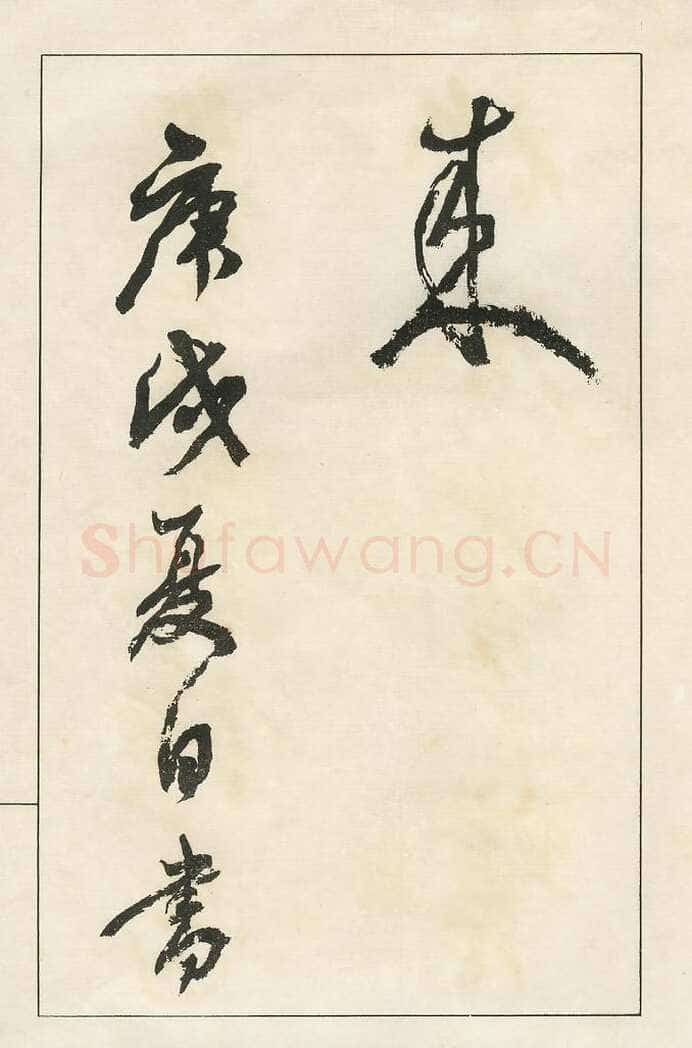 來
庚戌夏日書
Shufawang.CN